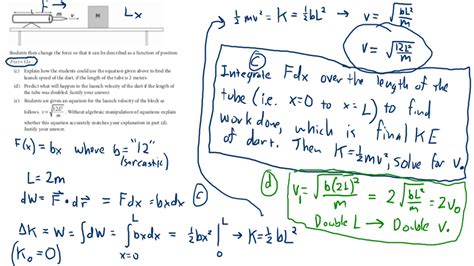 m
v
M
Lx
Students then change the force so that it can be described as a function of position:
F(x)=12x
(c) Explain how the students could use the equation given above to find the
launch speed of the dart, if the length of the tube is 2 meters
(d) Predict what will happen to the launch velocity of the dart if the length of
the tube was doubled. Justify your answer.
(e) Students are given an equation for the launch velocity of the block as
follows. v = √(12L²/m). Without algebraic manipulation of equations explain
whether this equation accurately matches your explanation in part (d).
Justify your answer.
F(x) = bx where b = "12"
(sarcastic)
L = 2m
dW = F⃗ · dr⃗ = Fdx = bxdx
ΔK = W = ∫dW = ∫ bxdx = ½bx² |
L
x=0
L
0
(K₀ = 0)
→ K = ½bL²
½mv² = K = ½bL² → v = √(bL²/m)
v = √(12L²/m)
c
Integrate Fdx over the length of the
tube (i.e. x=0 to x=L) to find
work done, which is final KE
of dart. Then K = ½mv², solve for v.
d
v₁ = √(b(2L)²/m) = 2√(bL²/m) = 2v₀
Double L → Double v.